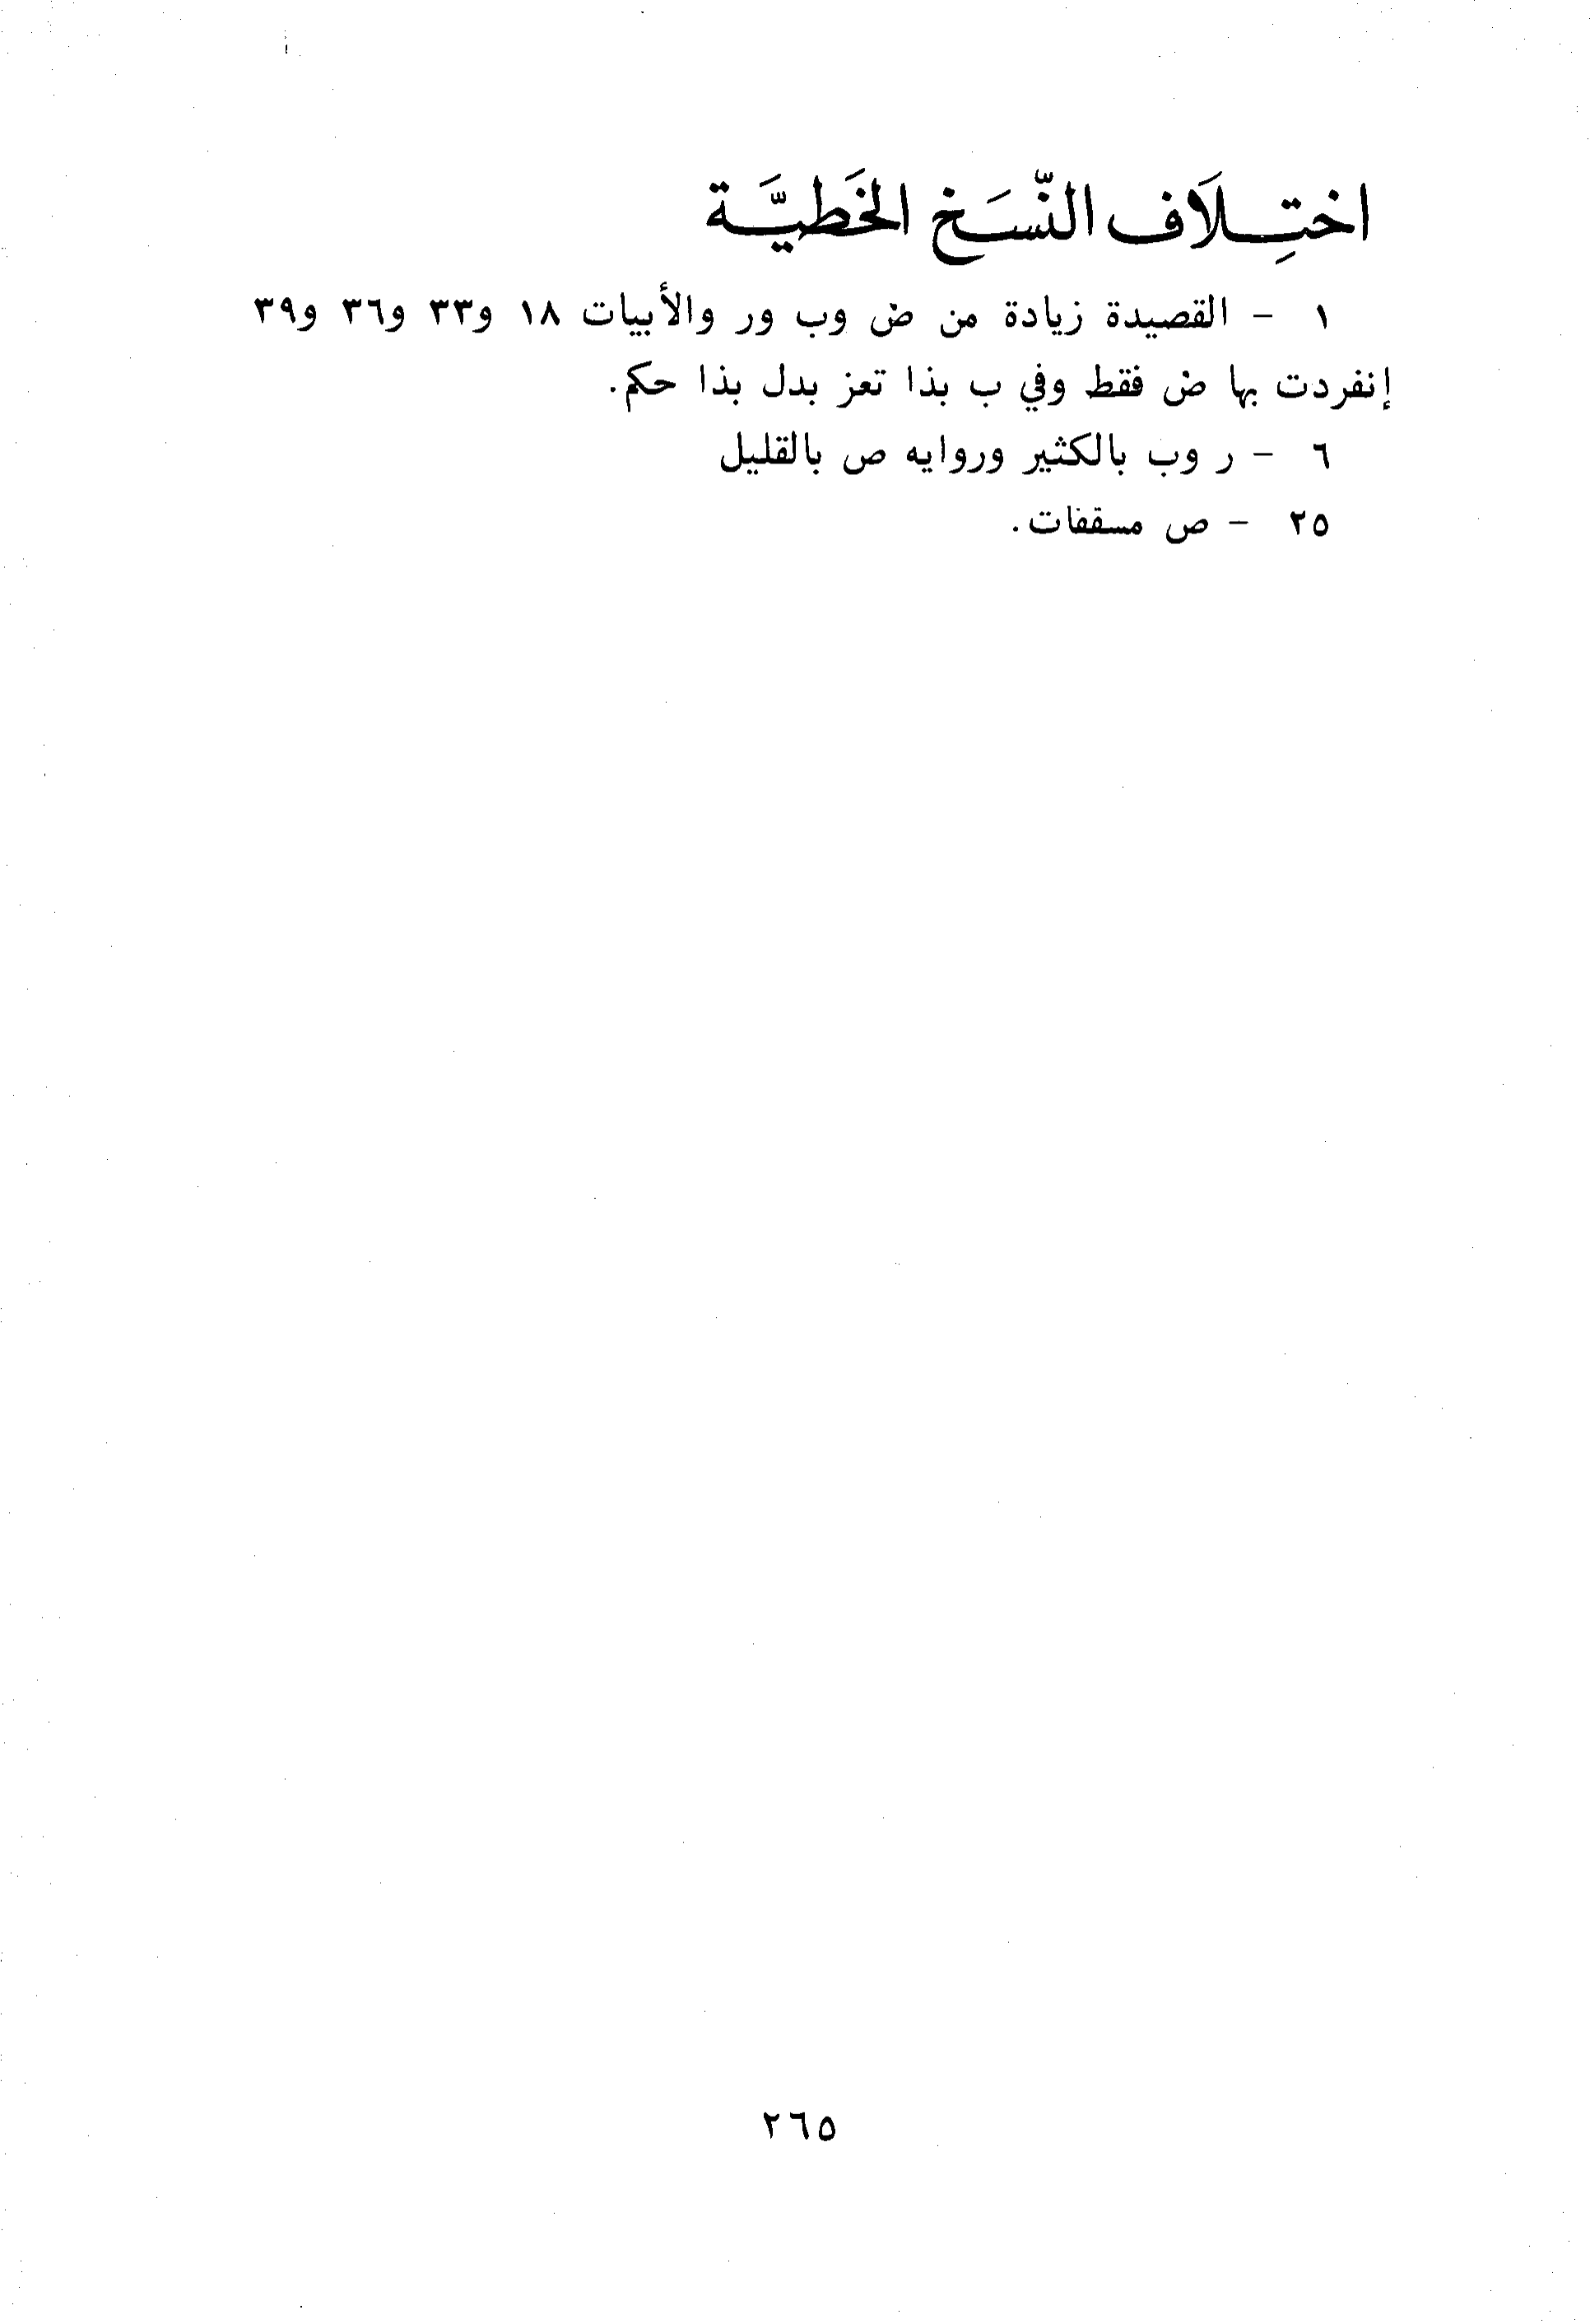 اختِلَاف النّسَخ الخَطيَّة
١ - القصيدة زيادة من ض وب ور والأبيات ١٨ و٣٣ و٣٦ و٣٩
إنفردت بها ض فقط وفي ب بذا تعز بدل بذا حكم.
٦ - ر وب بالكثير وروايه ص بالقليل
٢٥ - ص مسقفات.
٢٦٥